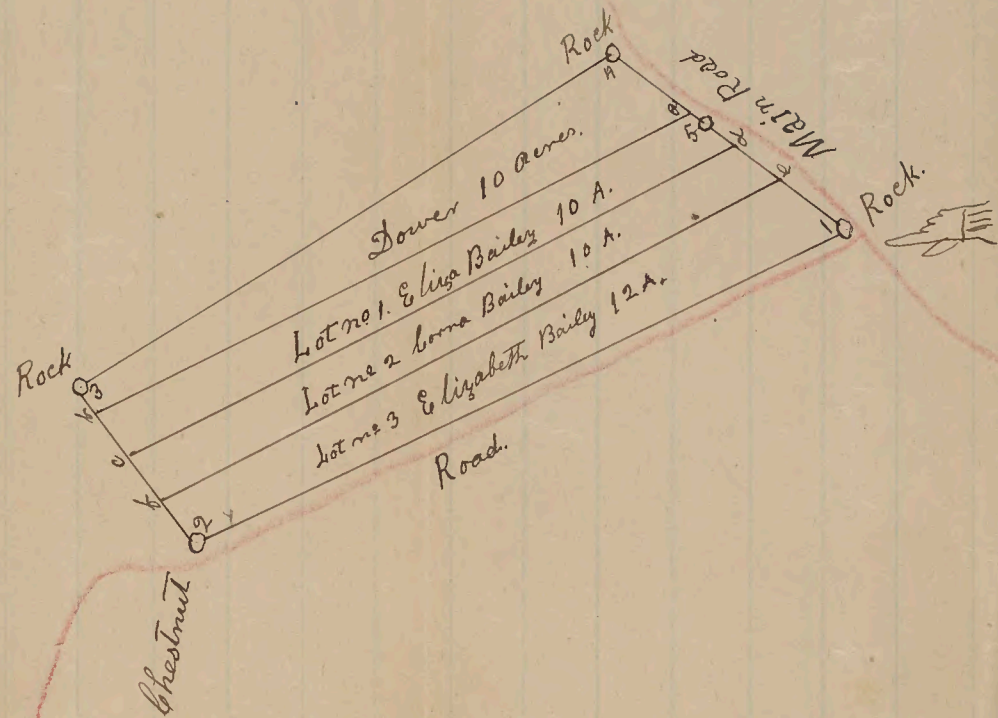 Rock
A
Main Road
a
5
a
a
Rock.
1
Dower 10 Acres.
Lot no 1. Eliza Bailey 10 A.
Lot no 2 Corra Bailey 10 A.
Lot no 3 Elizabeth Bailey 12 A.
Rock
3
b
c
b
2
Road.
Chestnut